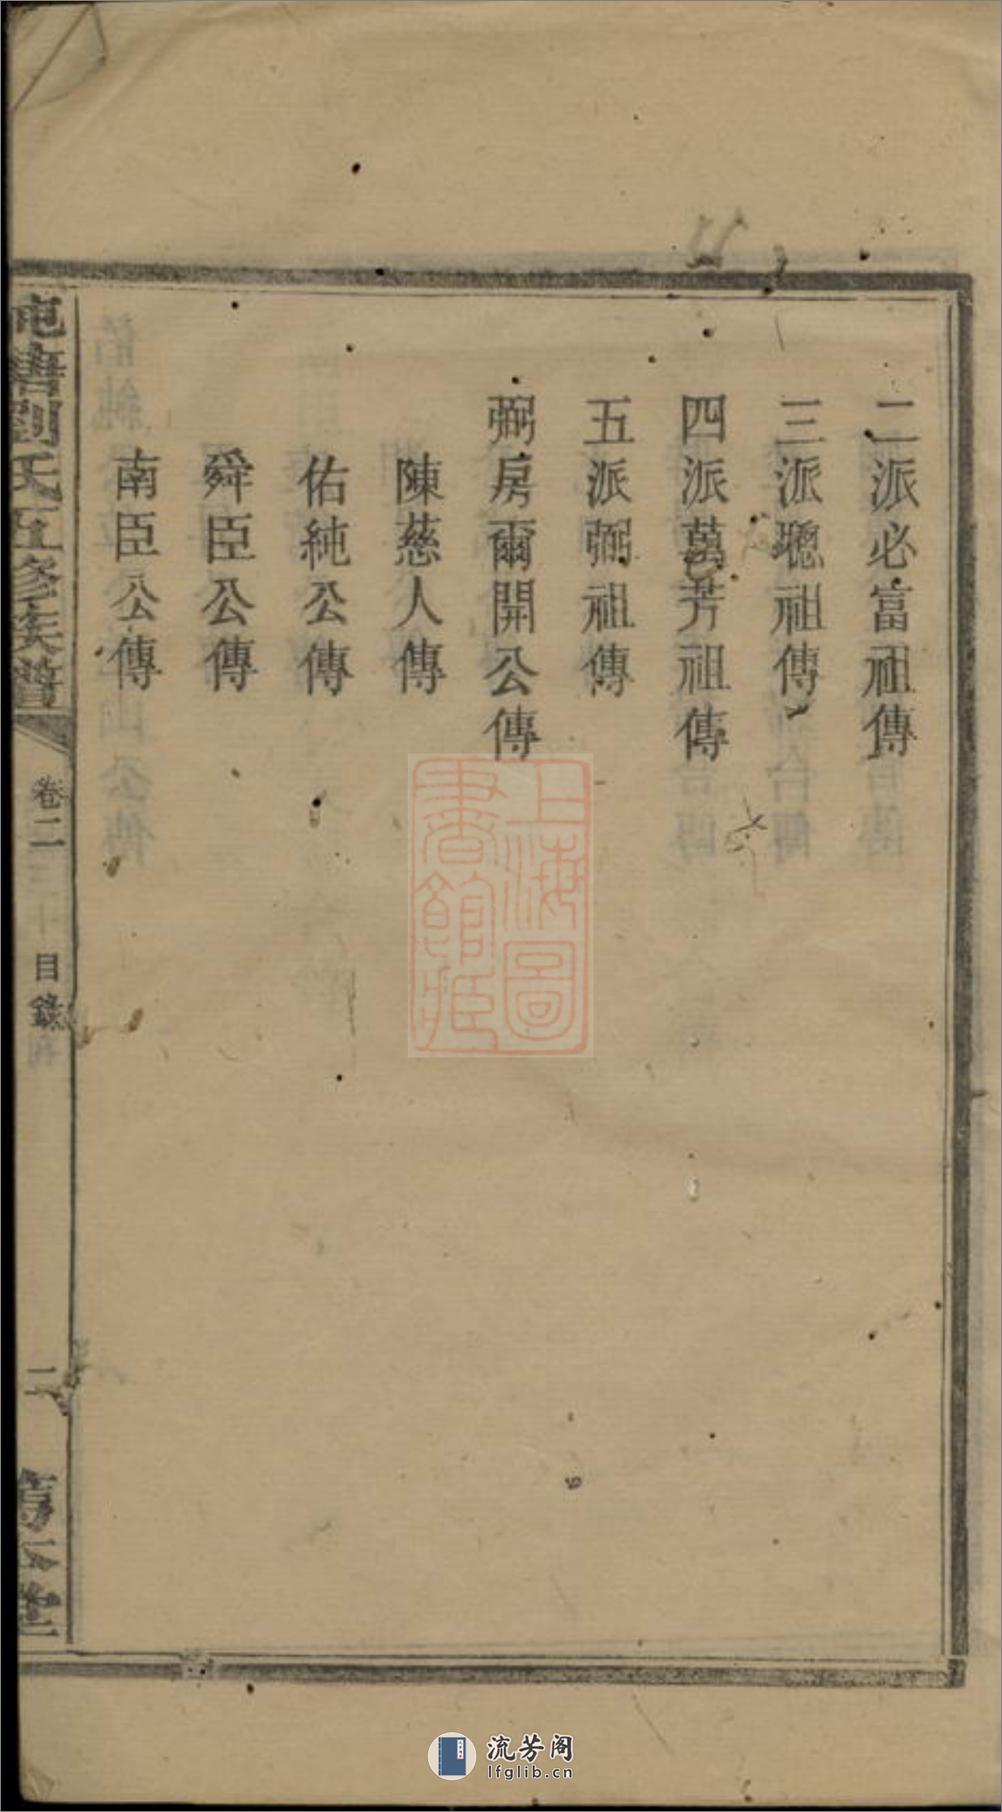 二派必富祖傳
三派聰祖傳
四派萬芳祖傳
五派弼祖傳
弼房爾開公傳
陳慈人傳
佑純公傳
舜臣公傳
南臣公傳
劉氏五修族譜
卷二
目錄
二
堂
上海圖
書館藏
流芳阁
lfglib.cn